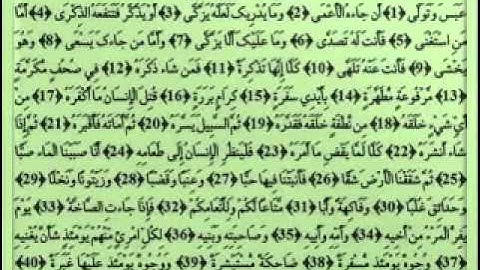 عَبَسَ وَتَوَلَّى ﴿1﴾ أَن جَاءهُ الْأَعْمَى ﴿2﴾ وَمَا يُدْرِيكَ لَعَلَّهُ يَزَّكَّى ﴿3﴾ أَوْ يَذَّكَّرُ فَتَنفَعَهُ الذِّكْرَى ﴿4﴾ أَمَّا
مَنِ اسْتَغْنَى ﴿5﴾ فَأَنتَ لَهُ تَصَدَّى ﴿6﴾ وَمَا عَلَيْكَ أَلَّا يَزَّكَّى ﴿7﴾ وَأَمَّا مَن جَاءكَ يَسْعَى ﴿8﴾ وَهُوَ
يَخْشَى ﴿9﴾ فَأَنتَ عَنْهُ تَلَهَّى ﴿10﴾ كَلَّا إِنَّهَا تَذْكِرَةٌ ﴿11﴾ فَمَن شَاء ذَكَرَهُ ﴿12﴾ فِي صُحُفٍ مُّكَرَّمَةٍ
﴿13﴾ مَّرْفُوعَةٍ مُّطَهَّرَةٍ ﴿14﴾ بِأَيْدِي سَفَرَةٍ ﴿15﴾ كِرَامٍ بَرَرَةٍ ﴿16﴾ قُتِلَ الْإِنسَانُ مَا أَكْفَرَهُ ﴿17﴾ مِنْ
أَيِّ شَيْءٍ خَلَقَهُ ﴿18﴾ مِن نُّطْفَةٍ خَلَقَهُ فَقَدَّرَهُ ﴿19﴾ ثُمَّ السَّبِيلَ يَسَّرَهُ ﴿20﴾ ثُمَّ أَمَاتَهُ فَأَقْبَرَهُ ﴿21﴾ ثُمَّ إِذَا
شَاء أَنشَرَهُ ﴿22﴾ كَلَّا لَمَّا يَقْضِ مَا أَمَرَهُ ﴿23﴾ فَلْيَنظُرِ الْإِنسَانُ إِلَى طَعَامِهِ ﴿24﴾ أَنَّا صَبَبْنَا الْمَاء صَبًّا
﴿25﴾ ثُمَّ شَقَقْنَا الْأَرْضَ شَقًّا ﴿26﴾ فَأَنبَتْنَا فِيهَا حَبًّا ﴿27﴾ وَعِنَبًا وَقَضْبًا ﴿28﴾ وَزَيْتُونًا وَنَخْلًا ﴿29﴾
وَحَدَائِقَ غُلْبًا ﴿30﴾ وَفَاكِهَةً وَأَبًّا ﴿31﴾ مَّتَاعًا لَّكُمْ وَلِأَنْعَامِكُمْ ﴿32﴾ فَإِذَا جَاءتِ الصَّاخَّةُ ﴿33﴾ يَوْمَ
يَفِرُّ الْمَرْءُ مِنْ أَخِيهِ ﴿34﴾ وَأُمِّهِ وَأَبِيهِ ﴿35﴾ وَصَاحِبَتِهِ وَبَنِيهِ ﴿36﴾ لِكُلِّ امْرِئٍ مِّنْهُمْ يَوْمَئِذٍ شَأْنٌ يُغْنِيهِ
﴿37﴾ وُجُوهٌ يَوْمَئِذٍ مُّسْفِرَةٌ ﴿38﴾ ضَاحِكَةٌ مُّسْتَبْشِرَةٌ ﴿39﴾ وَوُجُوهٌ يَوْمَئِذٍ عَلَيْهَا غَبَرَةٌ ﴿40﴾